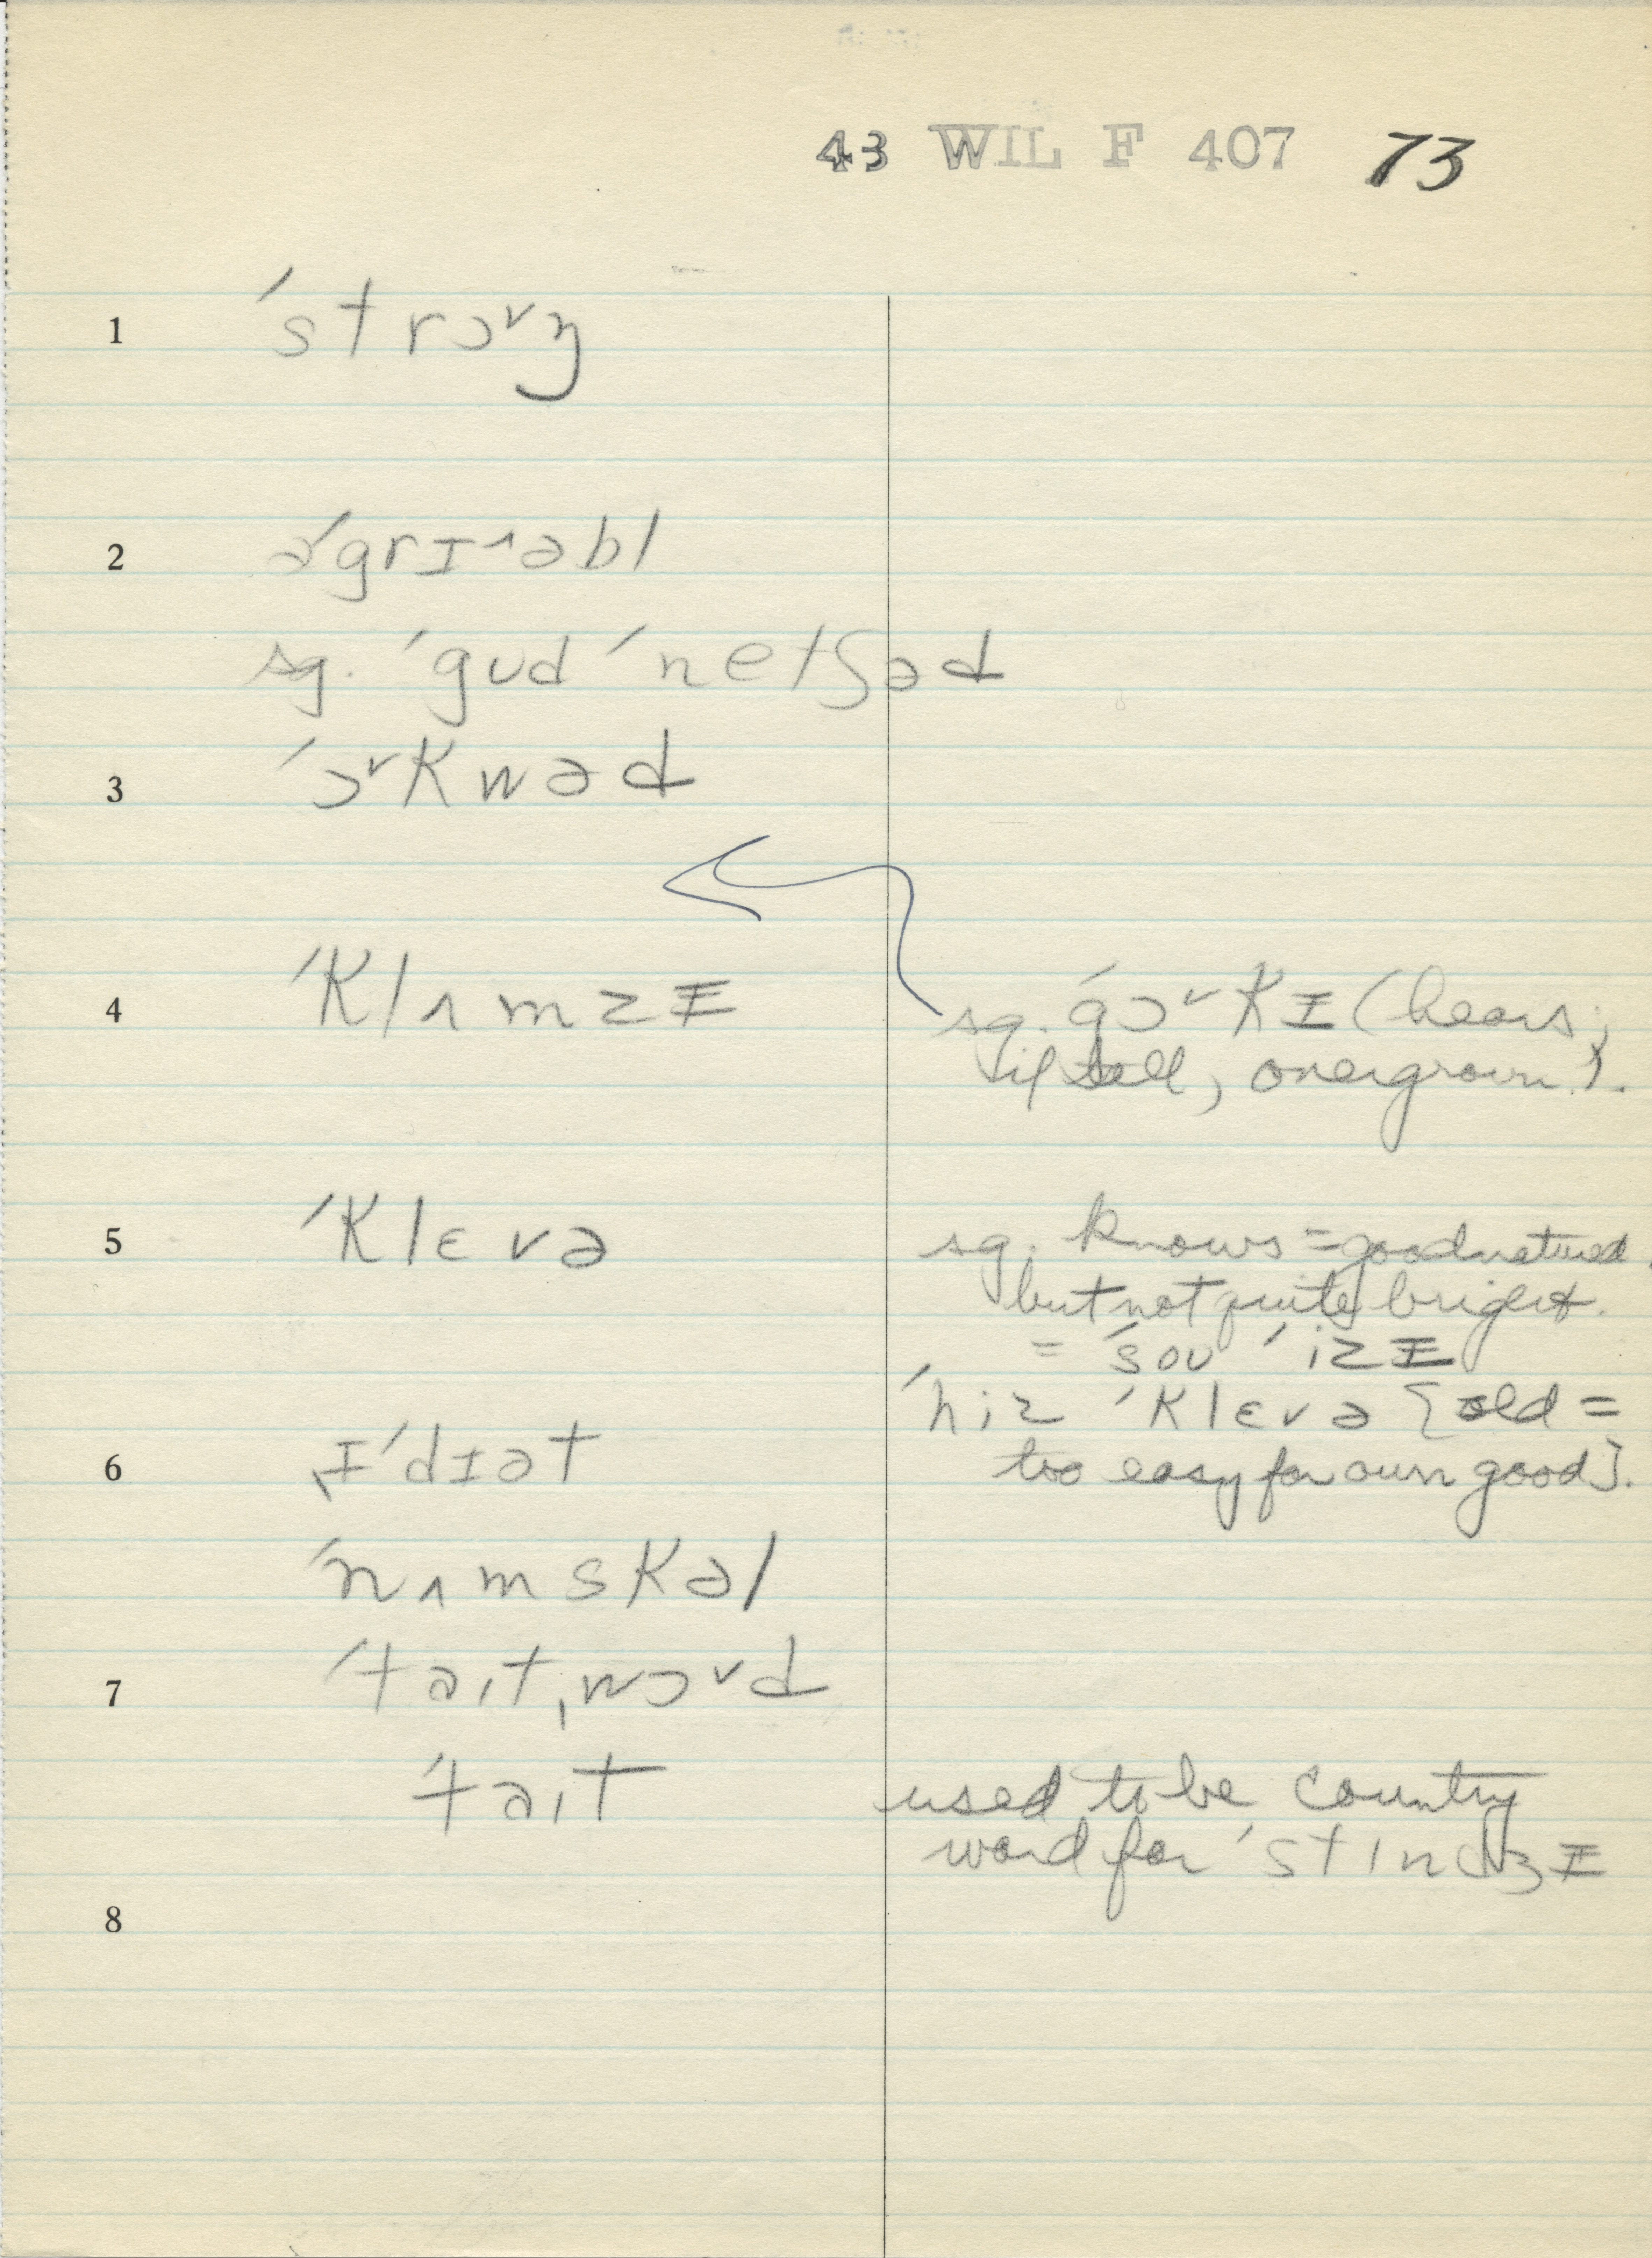 43 WIL F 407 73
1 ˈstrɔ˅ŋ
2 əˈgrɪ˄əbl
sg. ˈgʊd ˈnetʃəd
3 ˈɔ˅kwəd
4 ˈklʌmzɪ sg. ˈgɔ˅kɪ (hears;
if tall, overgrown).
5 ˈklɛvə sg. knows = goodnatured,
but not quite bright.
= ˈsoʊ ˈizɪ
ˈhiz ˈklɛvə [old =
6 ˌɪˈdɪət too easy for own good].
ˈnʌmskəl
7 ˈtaɪtˌwɔ˅d
ˈtaɪt used to be country
word for ˈstɪndʒɪ
8